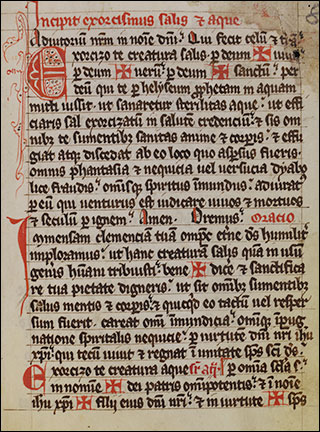 Incipit exorcismus salis et aque
Adiutoriū nr̄m in noīe dn̄i. Qui fecit celū et
Exorcizo te creatura salis p deum ✠ viuū
p deum ✠ verū. p deum ✠ sanctū. per
deū qui te p helyseum prophetam in aquam
mitti iussit. ut sanaretur sterilitas aque. ut effi
ciaris sal exorcizatū in salutē credenciū. et sis om
nibꝫ te sumentibꝫ sanitas anime et corpis. et effu
giat atqꝫ discedat ab eo loco quo aspsus fueris.
omnis phantasia et nequicia vel versucia dyabo
lice fraudis. omīsqꝫ spiritus īmundus. adiurat
p eū qui venturus est iudicare viuos et mortuos
et seculū p ignem. Amen. Oremus. Oracio
Immensam clemenciā tuā omps eterne ds̄ humilit
imploramus. ut hanc creaturā salis quā in usū
genis huāni tribuisti. bene ✠ dice et sanctifica
re tua pietate digneris. ut sit omībꝫ sumentibꝫ
salus mentis et corpis. et quicqd eo tactū vel resper
sum fuerit. careat omī īmundicia. omīqꝫ īpug
natione spiritalis nequicie. p virtutē dn̄i nr̄i ihu
xp̄i. qui tecū viuit et regnat ī unitate sps̄ sci ds̄.
Exorcizo te creatura aque p omīa scl̄a sc̄
in nomine ✠ dei patris omipotentis. et ī noīe
ihu xp̄i ✠ filij eius dn̄i nr̄i. et in virtute ✠ sps̄